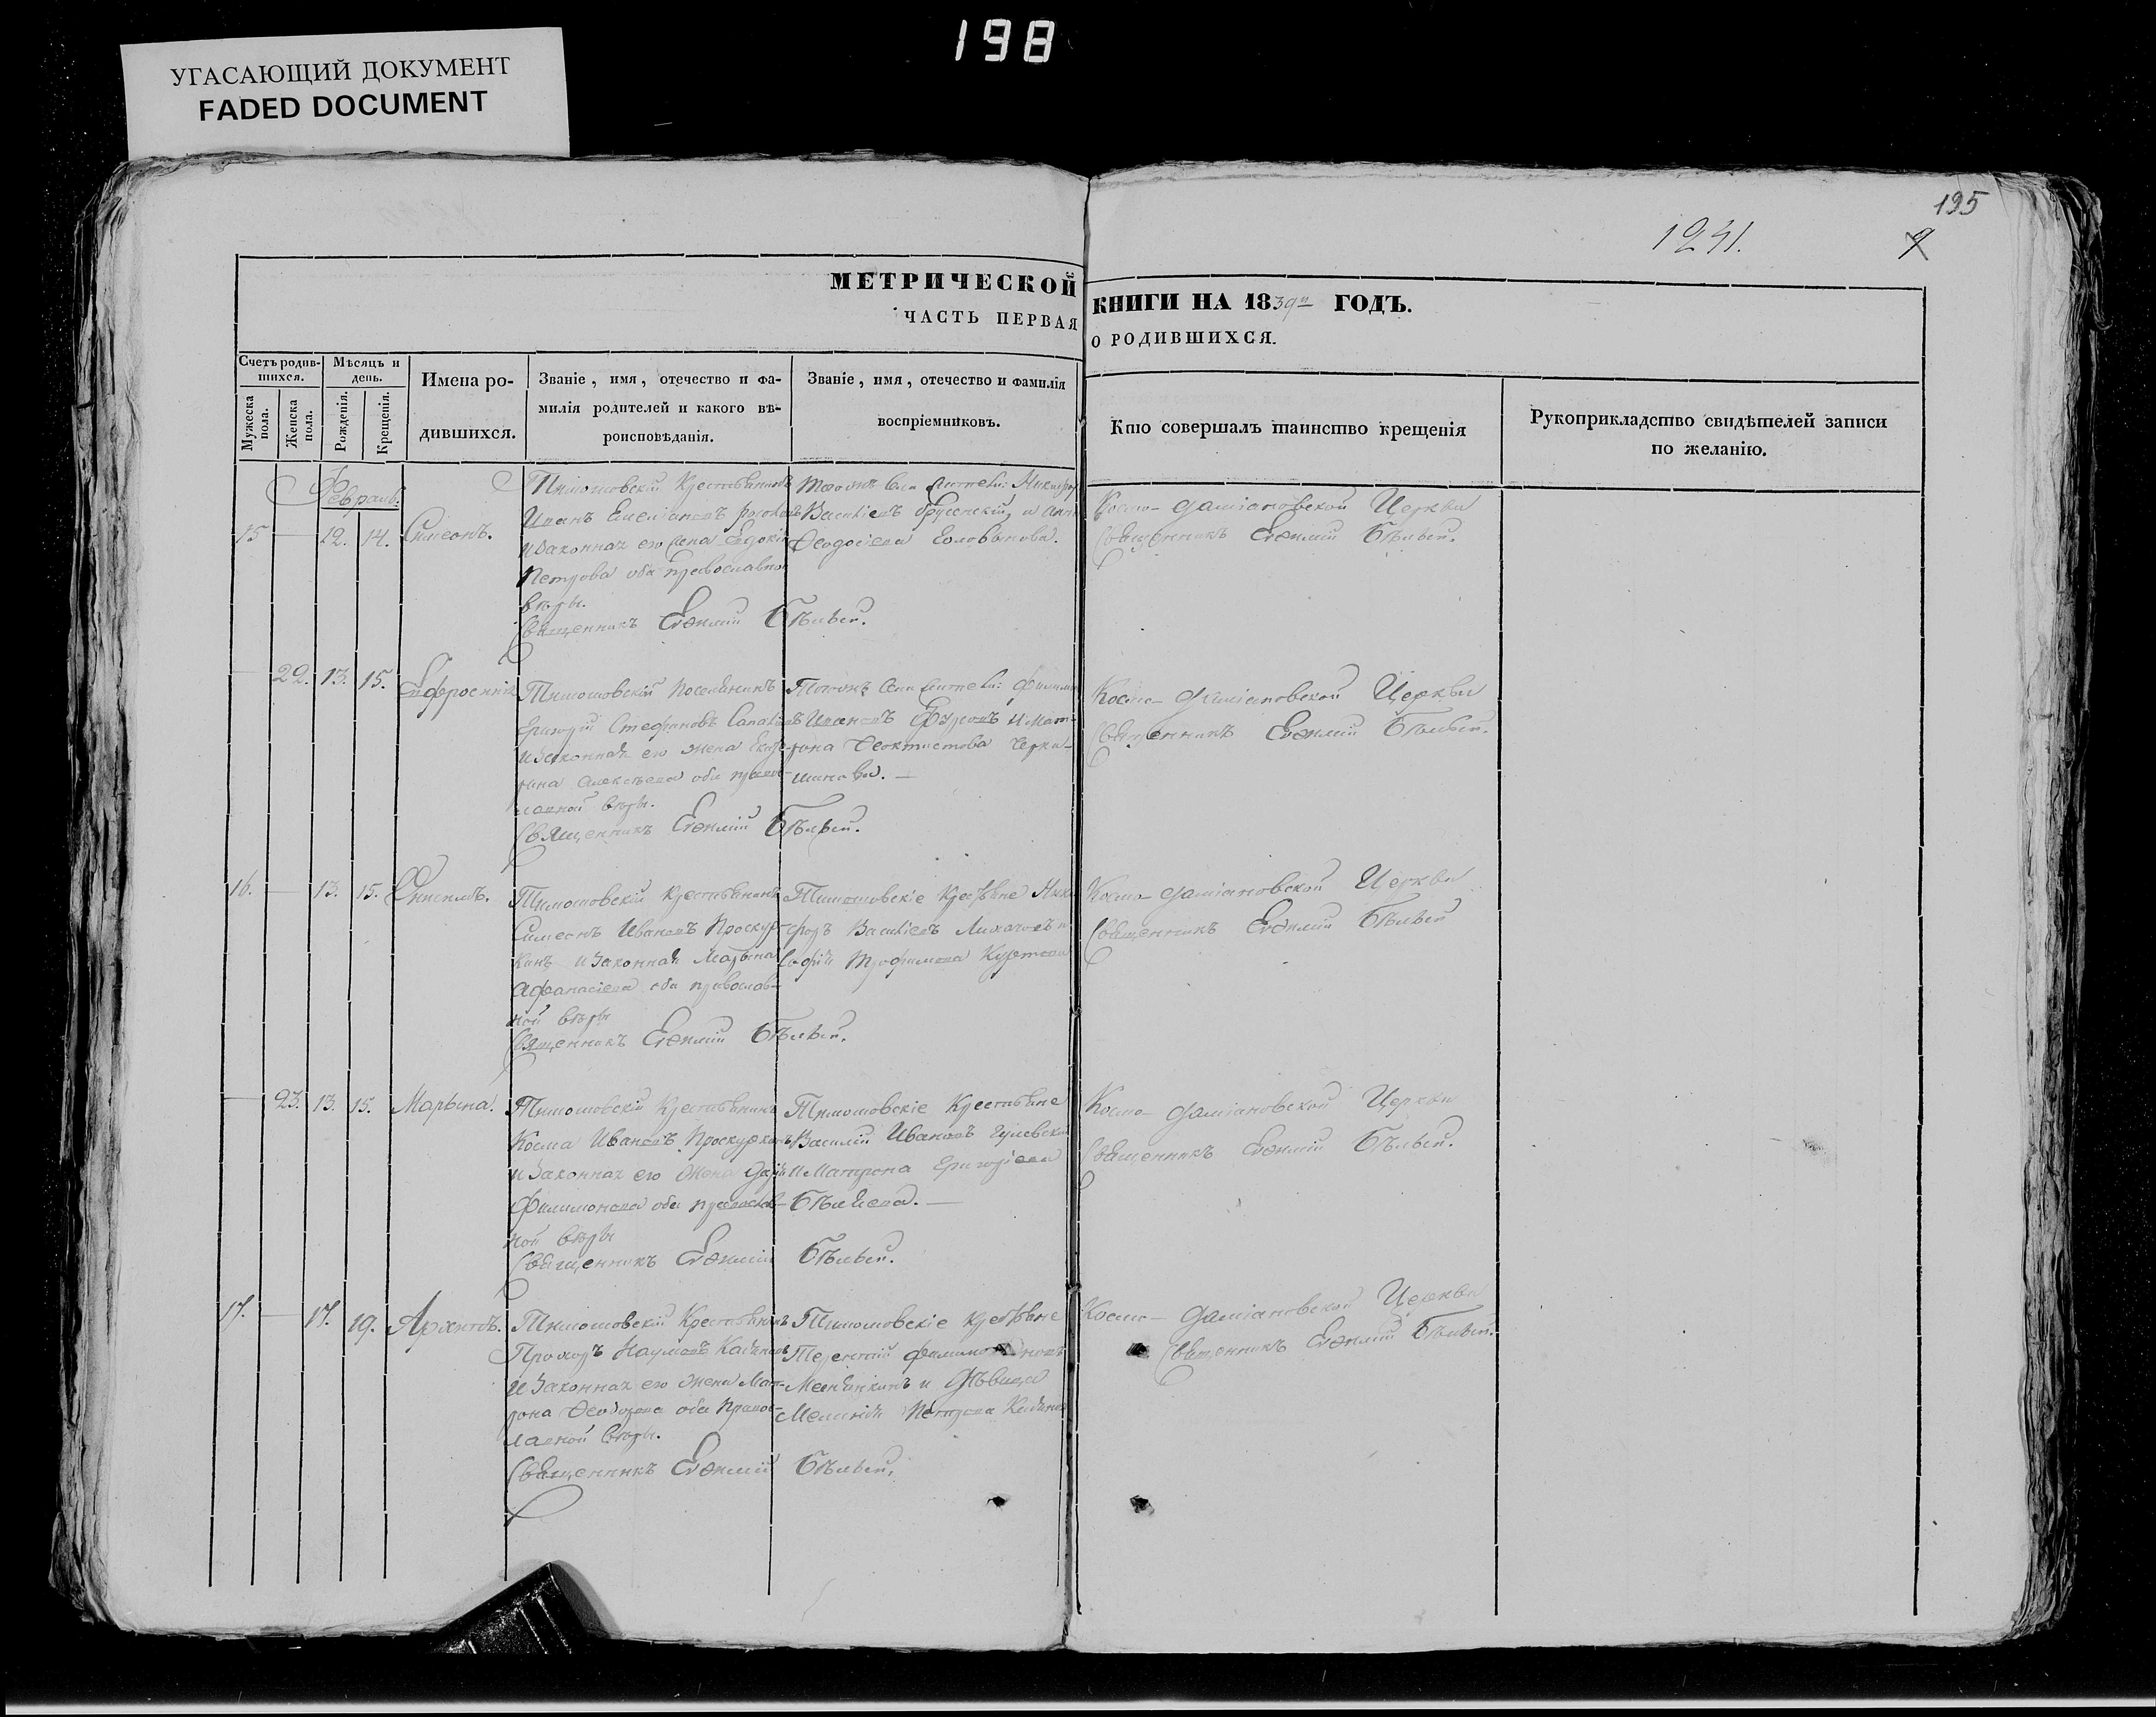 198
УГАСАЮЩИЙ ДОКУМЕНТ
FADED DOCUMENT
195
1241.
9
МЕТРИЧЕСКОЙ КНИГИ НА 1839й ГОДЪ.
ЧАСТЬ ПЕРВАЯ О РОДИВШИХСЯ.
Счетъ родив-
шихся.
Мужеска пола.
Женска пола.
Мѣсяцъ и
день.
Рожденія.
Крещенія.
Имена ро-
дившихся.
Званіе, имя, отечество и фа-
милія родителей и какого вѣ-
роисповѣданія.
Званіе, имя, отечество и фамилія
воспріемниковъ.
Кто совершалъ таинство крещенія
Рукоприкладство свидѣтелей записи
по желанію.
Февраль.
15 — 12. 14. Симеонъ.
Тимошовскій Крестьянинъ
Иванъ Емеліановъ
и законная его жена Евдокія
Петрова оба православной
вѣры.
Священникъ Евѳимій Бѣлый.
Василіевъ и Анна
Ѳеодосіева Головинова.
Космо-Даміановской Церкви
Священникъ Евѳимій Бѣлый.
— 22. 13. 15. Евфросинія
Тимошовскій Поселянинъ
Григорій Стефановъ
и законная его жена Екате-
рина Алексѣева оба правос-
лавной вѣры.
Священникъ Евѳимій Бѣлый.
Ивановъ и Мат-
рона Ѳеоктистова
Космо-Даміановской Церкви
Священникъ Евѳимій Бѣлый.
16. — 13. 15. Онисимъ.
Тимошовскій Крестьянинъ
Симеонъ Ивановъ Проскур-
кинъ и законная Марѳина
Афанасіева оба православ-
ной вѣры
Священникъ Евѳимій Бѣлый.
Тимошовскіе Крестьяне Ники-
форъ Василіевъ Лихачовъ и
Софія Трофимова
Космо-Даміановской Церкви
Священникъ Евѳимій Бѣлый
— 23. 13. 15. Марѳина.
Тимошовскій Крестьянинъ
Косма Ивановъ Проскуркинъ
и законная его жена Дарія
Филимонова оба православ-
ной вѣры
Священникъ Евѳимій Бѣлый.
Тимошовскіе Крестьяне
Василій Ивановъ
и Матрона Григоріева
Бѣляева. —
Космо-Даміановской Церкви
Священникъ Евѳимій Бѣлый.
17. — 17. 19. Архипъ.
Тимошовскій Крестьянинъ
Прохоръ Наумовъ
и законная его жена Мат-
рона Ѳеодорова оба правос-
лавной вѣры.
Священникъ Евѳимій Бѣлый.
Тимошовскіе Крестьяне
Терентій Филимоновъ
и дѣвица
Меланія Петрова
Космо-Даміановской Церкви
Священникъ Евѳимій Бѣлый.